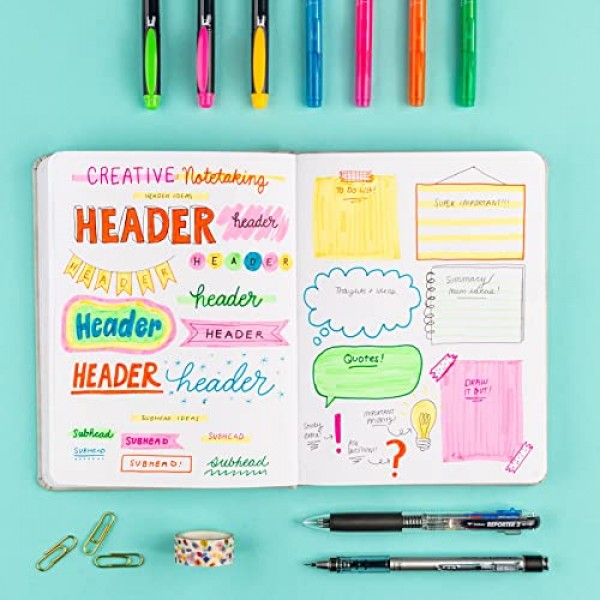 CREATIVE Notetaking
HEADER IDEAS
HEADER
header
HEADER
HEADER
header
Header
HEADER
HEADER
header
SUBHEAD IDEAS
Subhead
SUBHEAD
SUBHEAD
SUBHEAD
SUBHEAD!
Subhead
TO DO LIST!
SUPER IMPORTANT!!!
Thoughts + Ideas
Summary/
main ideas!
Quotes!
DRAW
IT OUT!
Study
extra!
!
important
ASK
QUESTIONS!
?
REPORTER 2